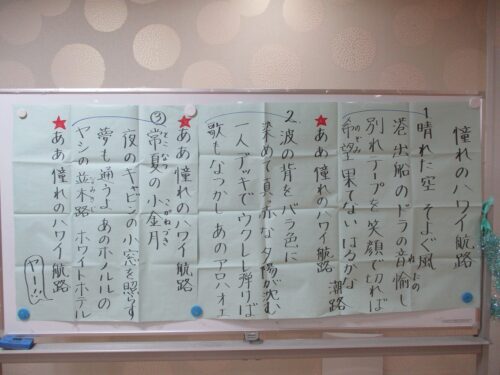 憧れのハワイ航路
1 晴れた空 そよぐ風
港出船の ドラの音愉し
別れテープを 笑顔で切れば
希望果てない はるかな 潮路
★ああ憧れのハワイ航路
2 波の背を バラ色に
染めて真赤な 夕陽が沈む
一人デッキで ウクレレ弾けば
歌もなつかし あのアロハオエ
★ああ憧れのハワイ航路
③ 常夏の 小金月
夜のキャビンの 小窓を照らす
夢も通うよ あのホノルルの
ヤシの並木路 ホワイトホテル
★ああ憧れのハワイ航路